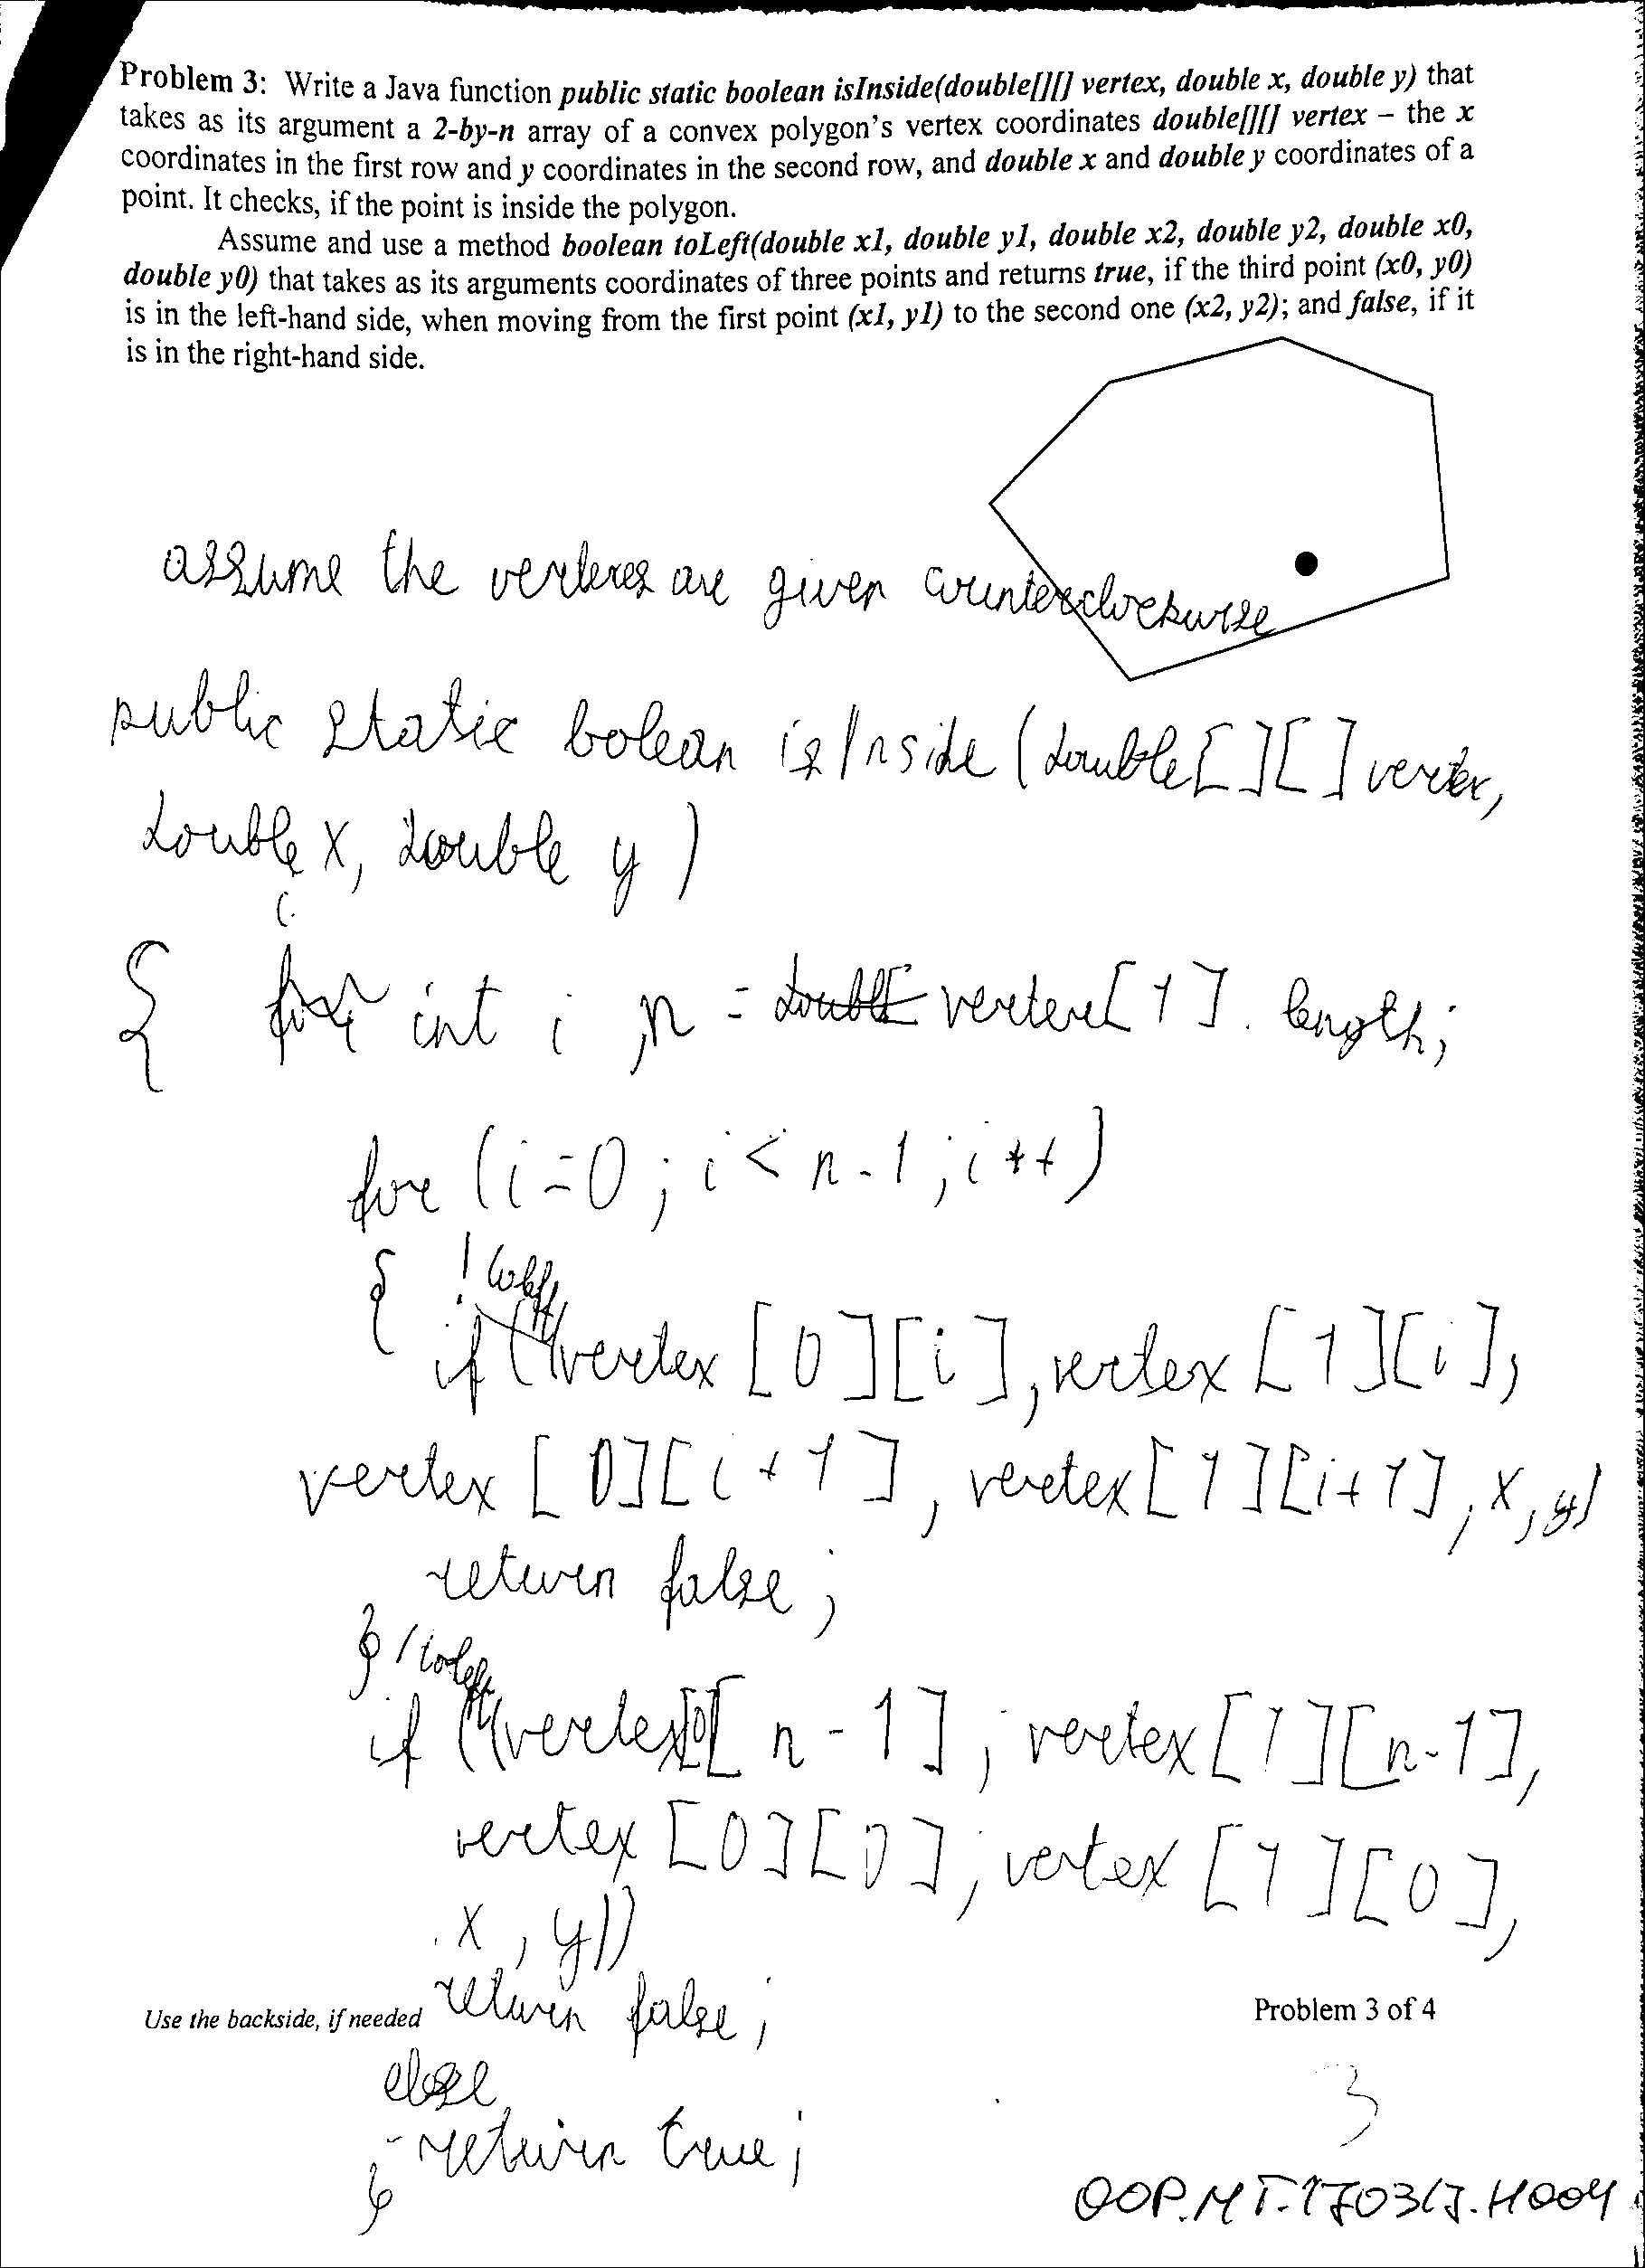 Problem 3: Write a Java function public static boolean isInside(double[][] vertex, double x, double y) that
takes as its argument a 2-by-n array of a convex polygon's vertex coordinates double[][] vertex – the x
coordinates in the first row and y coordinates in the second row, and double x and double y coordinates of a
point. It checks, if the point is inside the polygon.
Assume and use a method boolean toLeft(double x1, double y1, double x2, double y2, double x0,
double y0) that takes as its arguments coordinates of three points and returns true, if the third point (x0, y0)
is in the left-hand side, when moving from the first point (x1, y1) to the second one (x2, y2); and false, if it
is in the right-hand side.
assume the vertexes are given counterclockwise
public static bolean isInside (double[][] vertex,
double x, double y)
{ for int i, n = double vertex[1].length;
for (i=0; i < n-1; i++)
{ !toleft
if (vertex [0][i], vertex [1][i],
vertex [0][i+1], vertex [1][i+1], x, y)
return false;
} !toleft
if (vertex[0][n-1], vertex[1][n-1],
vertex [0][0], vertex [1][0],
x, y))
return false;
Use the backside, if needed
Problem 3 of 4
else
return true;
}
3
OOP.MT.170317.H004